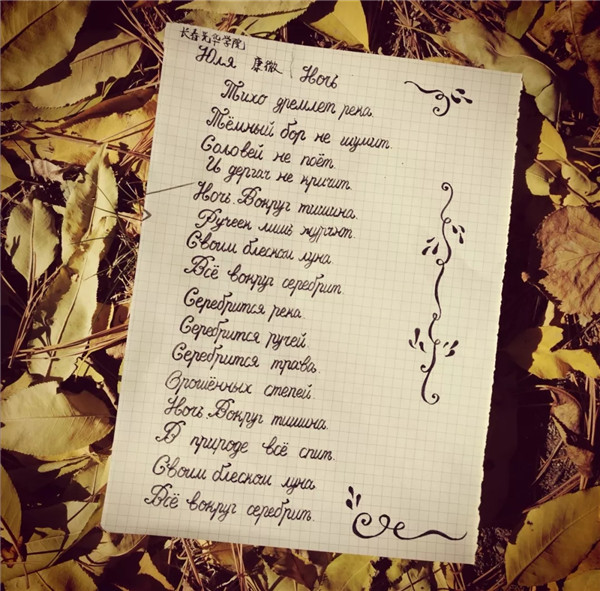 长春光华学院
Юля 康薇 Ночь
Тихо дремлет река.
Тёмный бор не шумит.
Соловей не поёт.
И дергач не кричит.
Ночь. Вокруг тишина.
Ручеек лишь журчит.
Своим блеском луна
Всё вокруг серебрит.
Серебрится река.
Серебрится ручей.
Серебрится трава.
Орошённых степей
Ночь. Вокруг тишина.
В природе всё спит.
Своим блеском луна
Всё вокруг серебрит.